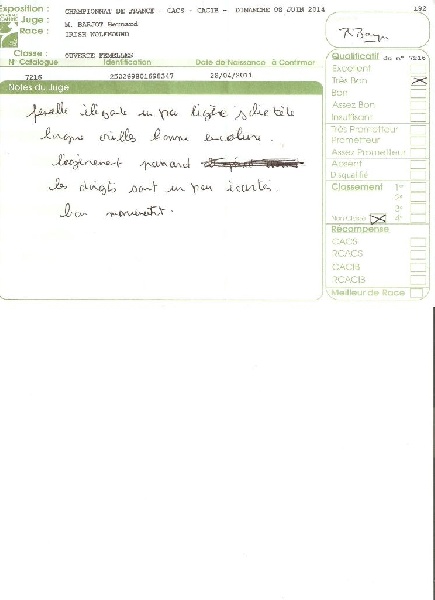 Exposition : CHAMPIONNAT DE FRANCE - CACS - CACIB - DIMANCHE 08 JUIN 2014 192
Juge : M. BARJOT Bernard
Race : IRISH WOLFHOUND
Classe : OUVERTE FEMELLES
N° Catalogue Identification Date de Naissance à Confirmer
7216 28/04/2011
Notes du Juge
femelle élégante un peu légère jolie tête
longue oreilles bonne encolure.
légèrement panard
les doigts sont un peu écartés.
bon mouvement.
Qualificatif du n° 7216
Excellent
Très Bon
Bon
Assez Bon
Insuffisant
Très Prometteur
Prometteur
Assez Prometteur
Absent
Disqualifié
Classement 1er
2e
3e
Non Classé 4e
Récompense
CACS
RCACS
CACIB
RCACIB
Meilleur de Race